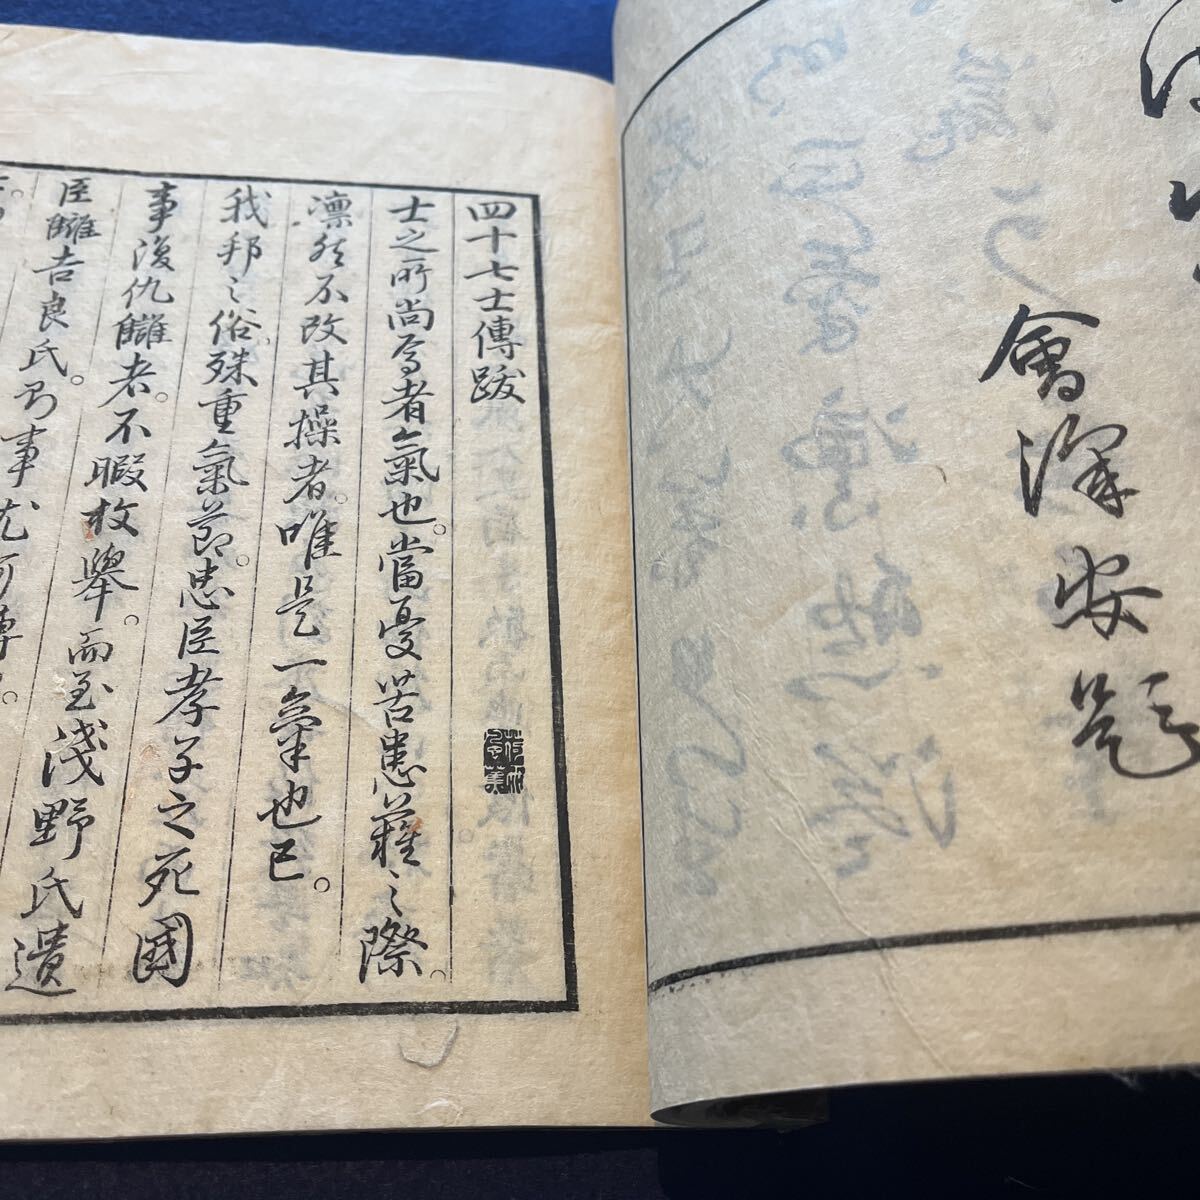 會澤安題
四十七士傳跋
士之所尚焉者氣也。當憂苦患難之際。
凛然不改其操者。唯是一氣也已。
我邦之俗。殊重氣節。忠臣孝子之死國
事復仇讎者。不暇枚舉。而至淺野氏遺
臣讎吉良氏。